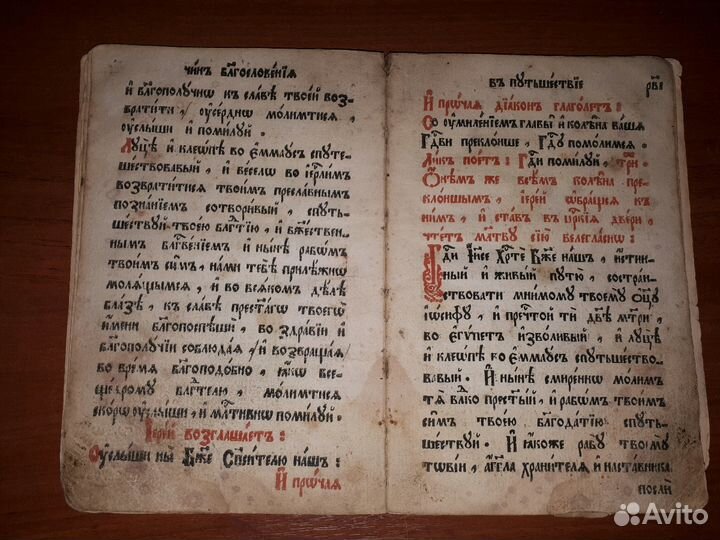 чи́нъ блгⷭ҇ове́нїѧ
и҆ бл҃гополꙋ́чнѡ къ сла́вѣ твое́й воз-
врати́ти, ᲂу҆се́рднѡ мо́лимтисѧ,
ᲂу҆слы́ши и҆ поми́лꙋй.
Лꙋцѣ̀ и҆ клео́пѣ во є҆ммаꙋ́съ спꙋте-
ше́ствовавый, и҆ ве́село во і҆ерⷭ҇ли́мъ
возврати́тисѧ твои́мъ пресла́внымъ
позна́нїемъ сотвори́вый, спꙋтъ-
ше́ствꙋй твое́ю блгⷣтїю, и҆ бж҃е́стве-
нымъ блгⷭ҇ве́нїемъ и҆ нн҃ѣ рабѡ́мъ
твои̑мъ си̑мъ, на́ми тебѣ̀ прилѣ́жнѡ
молѧ́щымсѧ, и҆ во всѧ́комъ дѣ́лѣ
бла́зѣ, къ сла́вѣ прест҃а́гѡ твоегѡ̀
и҆́мени благопоспѣшѝ, во здра́вїи и҆
бл҃гополꙋ́чїи соблюда́ѧ, и҆ возвраща́ѧ
во вре́мѧ благоподо́бно, ꙗ҆́кѡ все-
ще́дромꙋ блгⷣтелю, мо́лимтисѧ
ско́рѡ ᲂу҆слы́ши, и҆ млⷭ҇тивнѡ поми́лꙋй.
І҆ере́й возглаша́етъ:
Оу҆слы́ши ны̀ бж҃е сп҃си́телю на́шъ:
И҆ прѡ́чаѧ
въ пꙋтьше́ствїе
И҆ прѡ́чаѧ дїа́конъ глаго́летъ:
Со ᲂу҆миле́нїемъ главы̑ и҆ колѣ̑на ва̑шѧ
гдⷭ҇ви прекло́нше, гдⷭ҇ꙋ помо́лимсѧ.
Ли́къ пое́тъ: гдⷭ҇и поми́лꙋй, три́ж.
Ѻ҆нѣ̑мъ же всѣ̑мъ колѣ̑на пре-
кло́ньшымъ, і҆ере́й ѡ҆бра́щсѧ къ
ни̑мъ, и҆ ста́въ въ црⷭ҇кїѧ две́ри,
чте́тъ мл҃твꙋ сїю̀ велегла́снѡ:
Гдⷭ҇и і҆и҃се хрⷭ҇те́ бж҃е на́шъ, и҆́стин-
ный и҆ живы́й пꙋтю̀, состра́н-
ствовати мни́момꙋ твоемꙋ̀ ѻ҆ц҃ꙋ̀
і҆ѡ́сифꙋ, и҆ пречⷭ҇той тѝ дв҃ѣ мт҃ри,
во є҆гѵ́петъ и҆зво́ливый, и҆ лꙋцѣ̀
и҆ клео́пѣ во є҆ммаꙋ́съ спꙋтьше́ство-
вавый. И҆ нн҃ѣ смире́ннѡ мо́лим
тѧ̀ влⷣко прест҃ы́й, и҆ рабѡ́мъ твои̑мъ
си̑мъ твое́ю благода́тїю спꙋть-
ше́ствꙋй. И҆ ꙗ҆́коже рабꙋ̀ твоемꙋ̀
тѡві́и, а҆́гг҃ла храни́телѧ и҆ наста́вника
посли̑
Avito